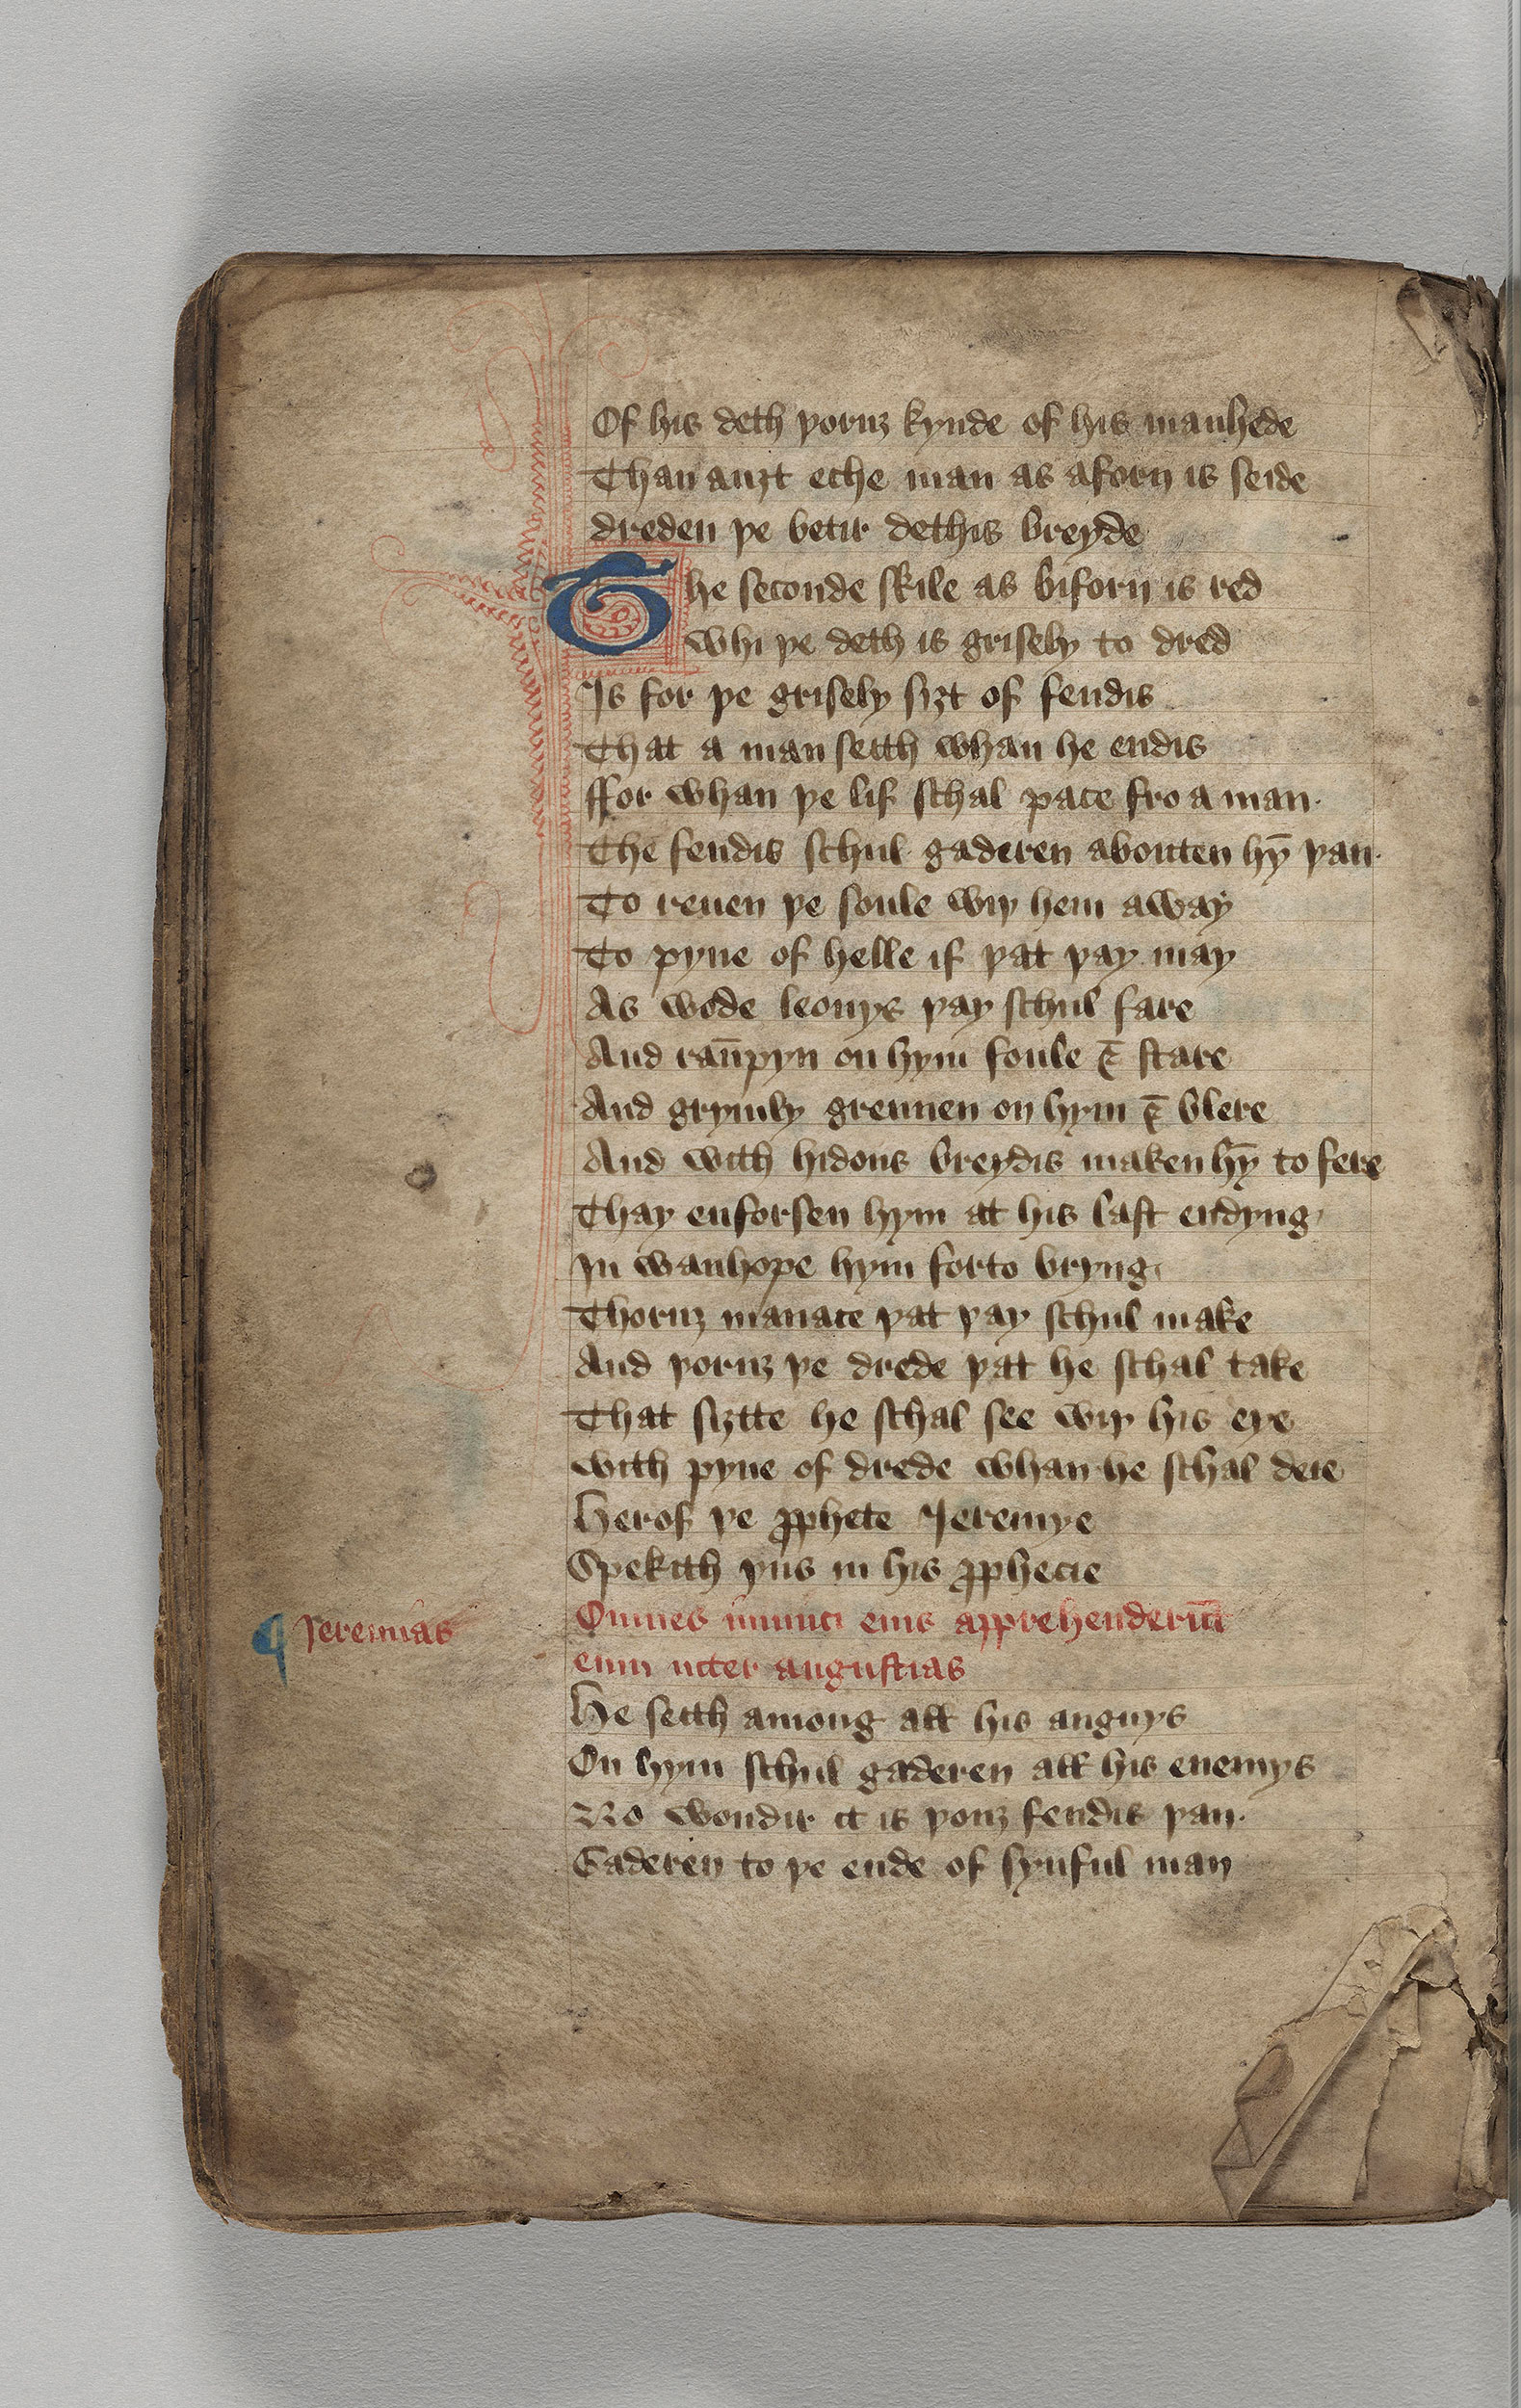 Of his deth þoruȝ kynde of his manhede
Than auȝt eche man as aforn is seide
dreden þe betir dethis breyde
The seconde skile as biforn is red
whi þe deth is grisely to dred
Is for þe grisely siȝt of fendis
That a man seith whan he endis
ffor whan þe lif schal pace fro a man.
The fendis schul gaderen abouten hȳ þan.
To reuen þe soule wiþ hem away
To pyne of helle if þat þay may
As wode leonys þay schul fare
And rau̅pyn on hym foule ⁊ stare
And grymly grennen on hym ⁊ blere
And with hidous breydis maken hȳ to fere
Thay enforsen hym at his last endyng
In wanhope hym forto bryng
Thoruȝ manace þat þay schul make
And þoruȝ þe drede þat he schal take
That siȝtte he schal see wiþ his eye
with pyne of drede whan he schal deie
Herof þe ꝓphete Jeremye
Spekith þus in his ꝓphecie
¶ Jeremias
Omnes inimici eius apprehenderūt
eum inter angustias
He seith among all his anguys
On hym schul gaderen all his enemys
No wondir it is þouȝ fendis þan.
Gaderen to þe ende of synful man